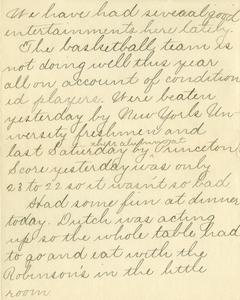 We have had seveaal good
entertainments here lately.
The basketball team is
not doing well this year
all on account of condition
ed players. Were beaten
yesterday by New York Un-
iversity freshmen and
last Saturday by Princeton
Score yesterday was only
23 to 22 so it wasnt so bad
Had some fun at dinner
today. Dutch was acting
up so the whole table had
to go and eat with the
Robinson's in the little
room